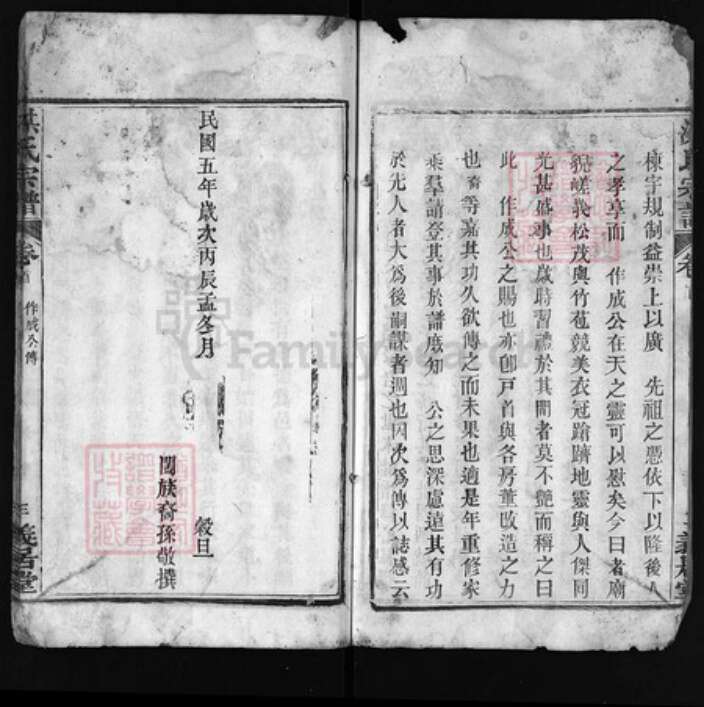 棟宇規制益崇上以廣　先祖之憑依下以隆後人
之孝享而　作成公在天之靈可以慰矣今日者廟
貌嵯峩松茂與竹苞競美衣冠蹌躋地靈與人傑同
光甚盛事也歲時習禮於其間者莫不艷而稱之曰
此　作成公之賜也亦卽戸首與各房董改造之力
也裔等嘉其功久欲傳之而未果也適是年重修家
乘羣請登其事於譜庶知　公之思深慮遠其有功
於先人者大爲後嗣謀者週也因次爲傳以誌感云
民國五年歲次丙辰孟冬月
穀旦
闔族裔孫敬撰
洪氏宗譜
卷首
作成公傳
義居堂
FamilySearch